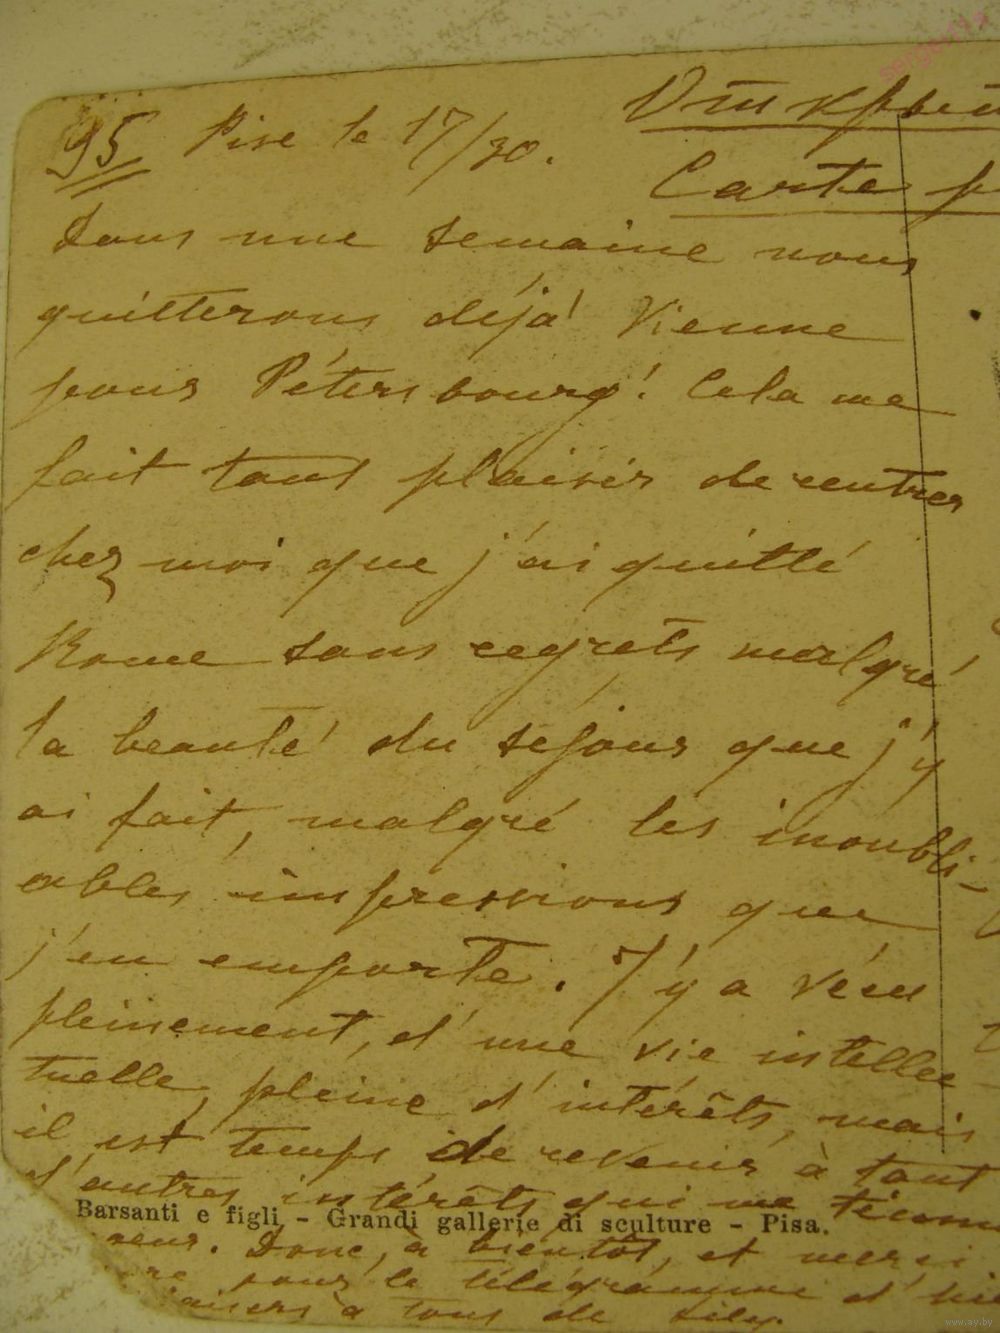 95 Pise le 17/30.
Открыт
Carte p
Dans une semaine nous
quitterons déjà Vienne
pour Pétersbourg! Cela me
fait tant plaisir de rentrer
chez moi que j'ai quitté
Rome sans regrets malgré
la beauté du séjour que j'y
ai fait, malgré les inoubli-
ables impressions que
j'en emporte. J'y a vécu
pleinement, d'une vie intellec-
tuelle, pleine d'intérêts, mais
il est temps de revenir à tant
d'autres intérêts qui me
Barsanti e figli - Grandi gallerie di sculture - Pisa.
Donc, à bientôt, et merci
pour le télégramme d'hie
à tous de
www.ay.by